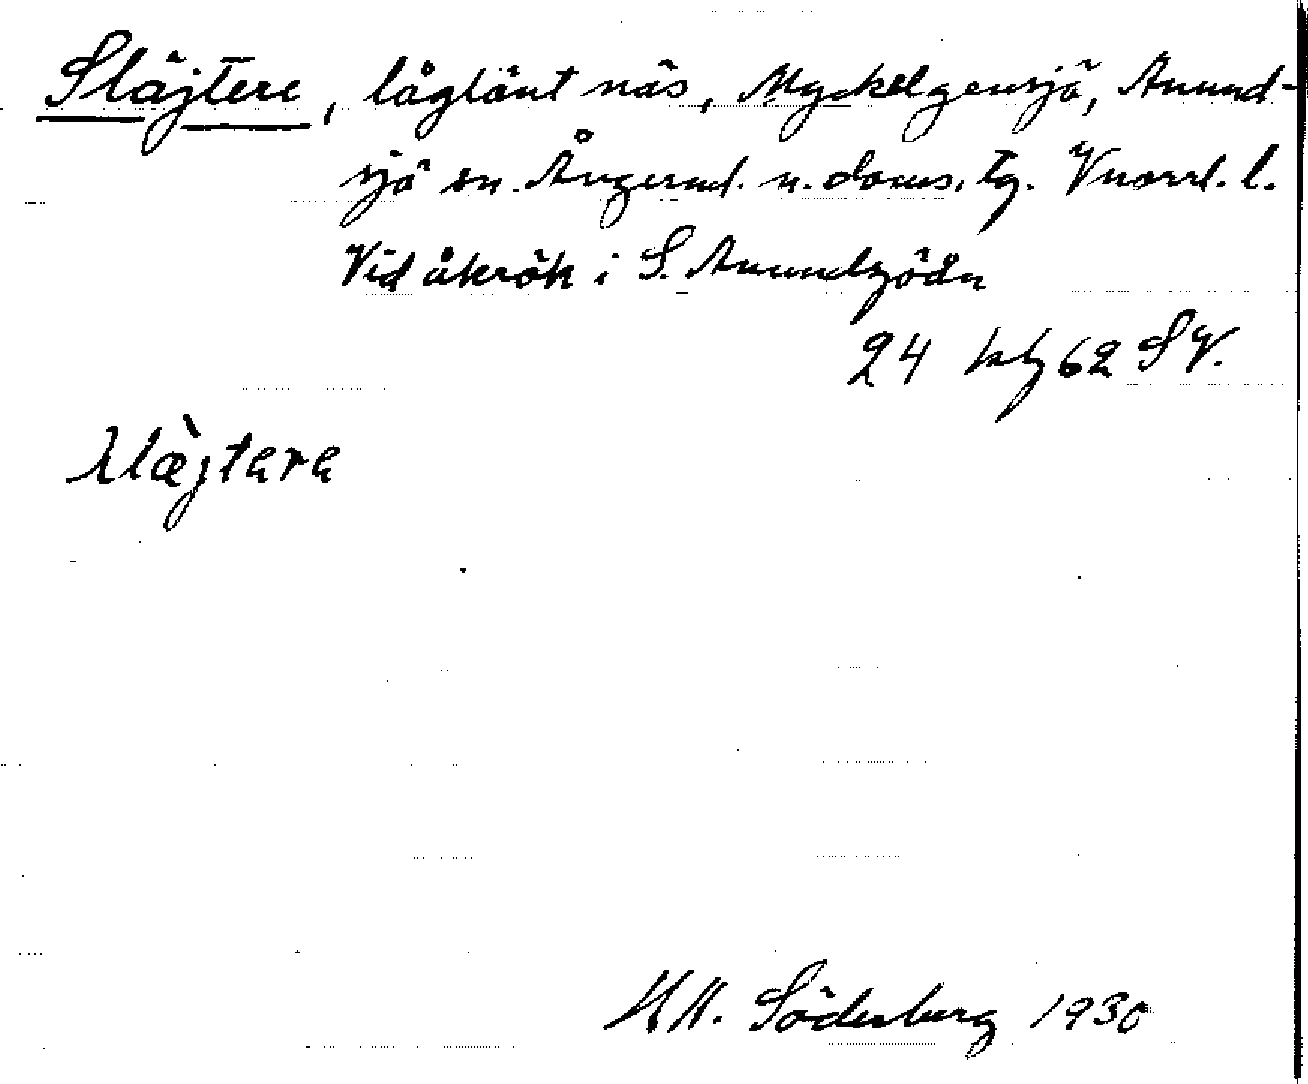 Släjtere, låglänt näs, Myckelgensjö, Anund-
sjö sn. Ångerml. n. doms. tg. Vnorrl. l.
Vid åkrök i S. Anundsjöån
24 blz 62 SV.
slæ̀jtara
Söderberg 1930